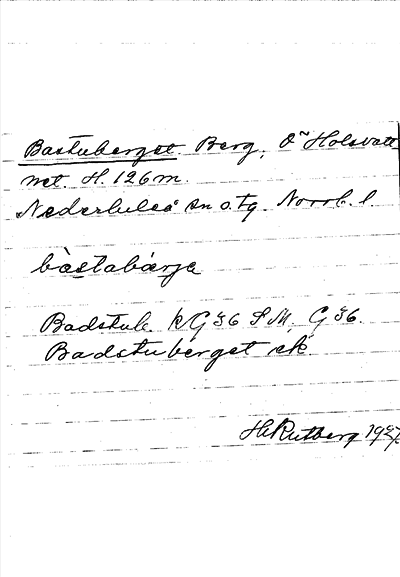 Bastuberget. Berg, ö Holsvatt
net. H. 126 m.
Nederluleå sn o. tg. Norrb. l.
bàstabärja
Badstub. kG 36 SM, G 36.
Badstuberget ek.
H. Rutberg 1927